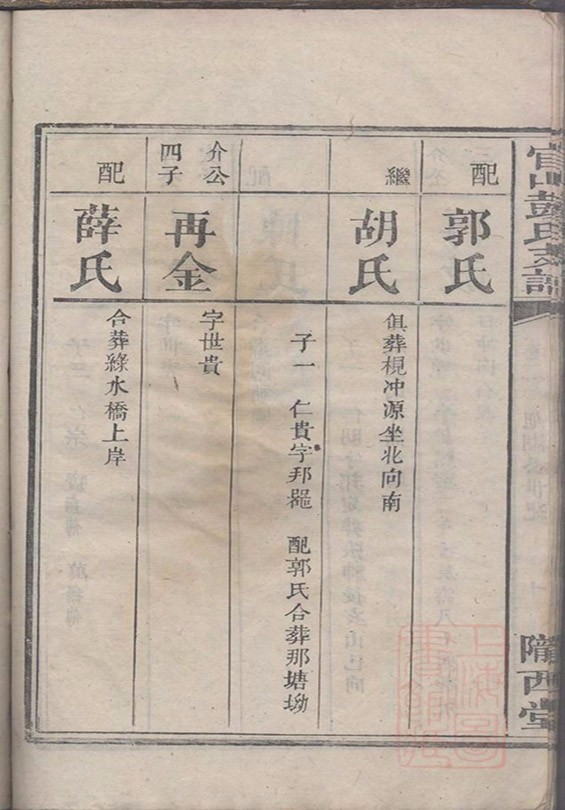 官山彭氏支譜
隴西堂
配
郭氏
繼
胡氏
俱葬梘冲源坐北向南
子一 仁貴字邦 配郭氏合葬那塘坳
介公
四子
再金
字世貴
配
薛氏
合葬綠水橋上岸